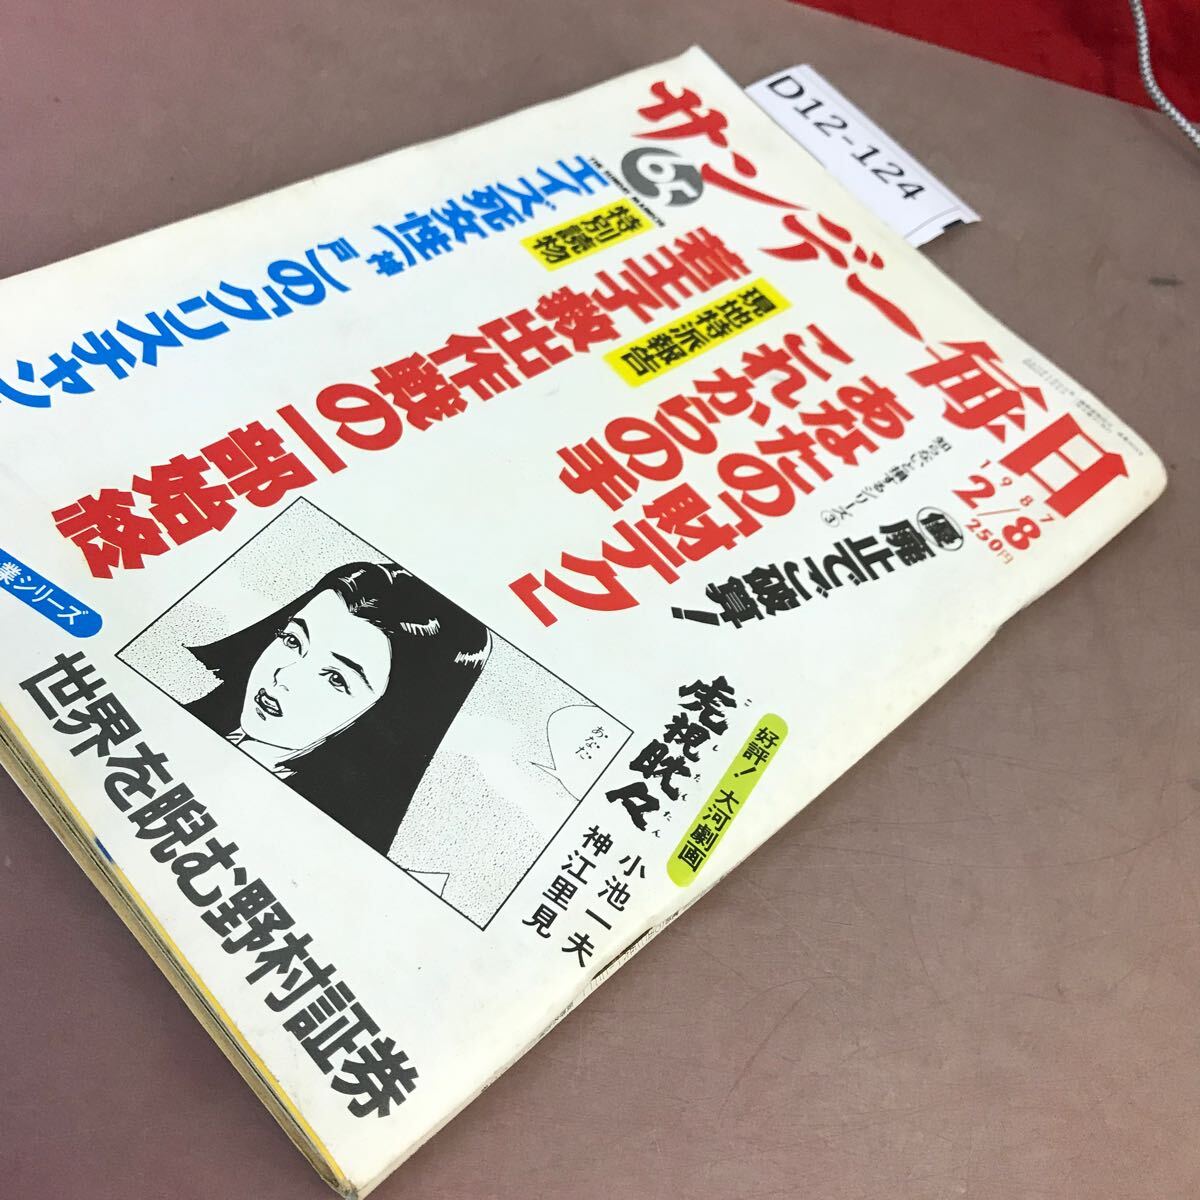 D12-124
サンデー毎日
65
THE SUNDAY MAINICHI
1987
2/8
250円
優廃止でご破算!
知らないと損するシリーズ③
あなたの「財テク」
これからの手
現地特派報告
若王子救出作戦の一部始終
特別読物
エイズ死女性(神戸)の「クリスチャン
業シリーズ
世界を睨む野村証券
あなた
好評! 大河劇画
虎視眈々
こしたんたん
小池一夫
神江里見